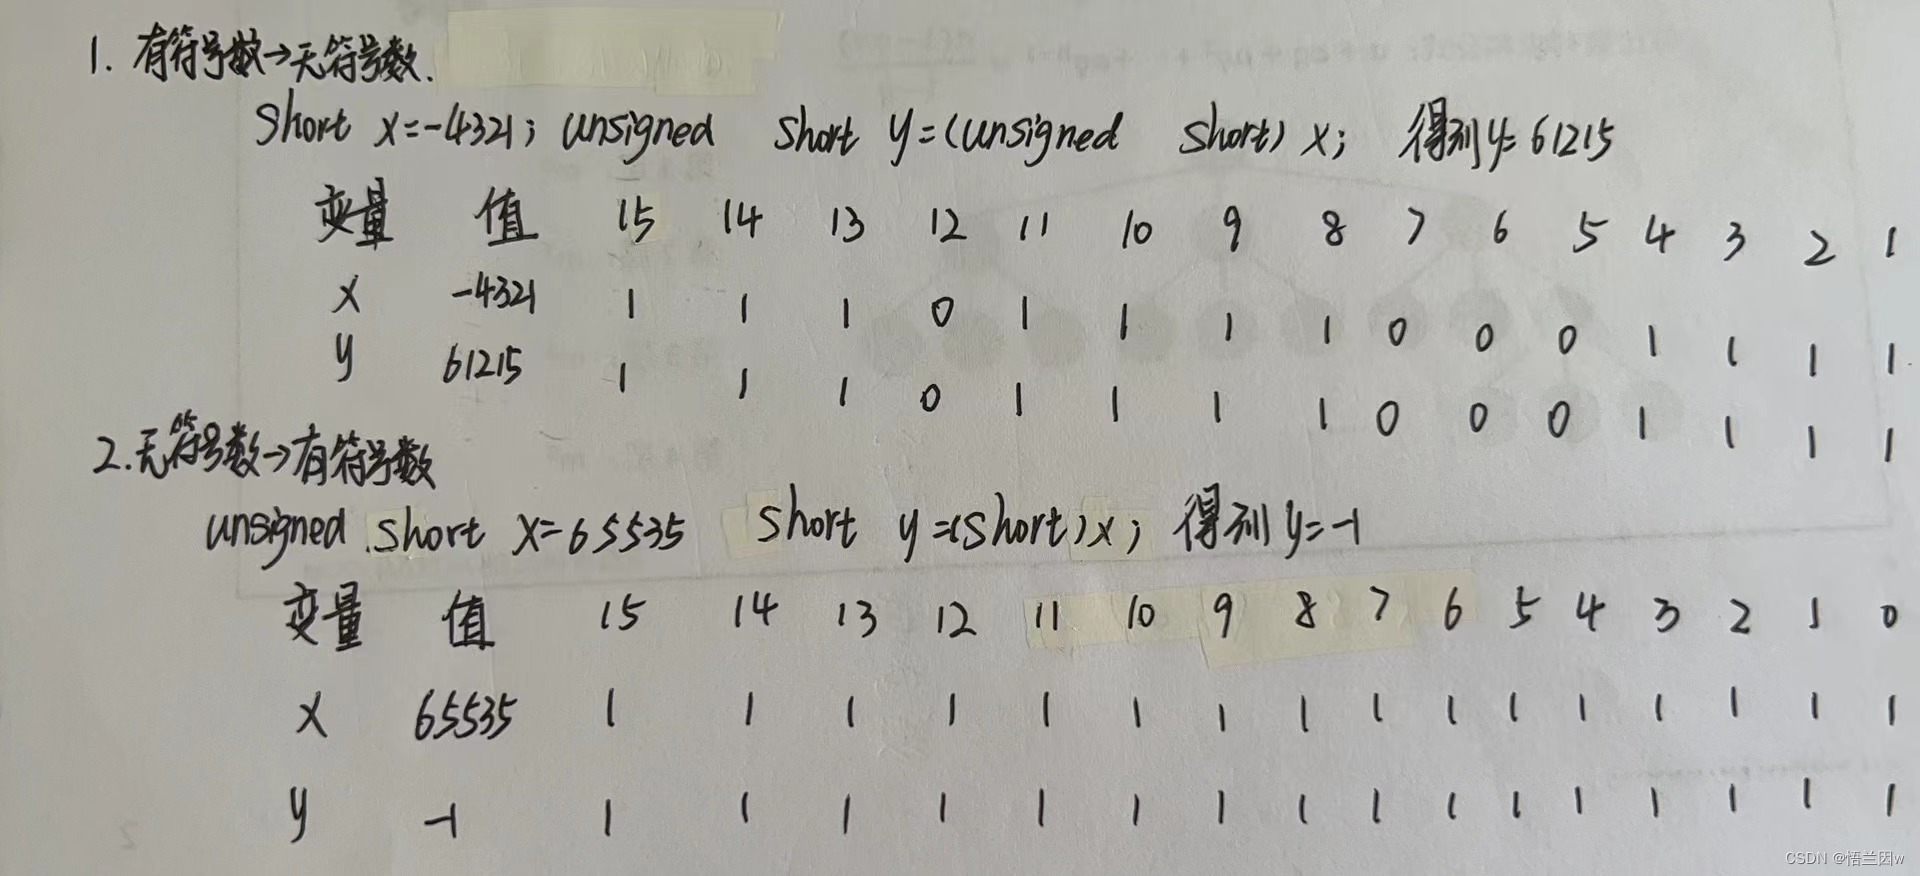 1. 有符号数→无符号数.
short x=-4321; unsigned short y=(unsigned short) x; 得到y=61215
变量 值 15 14 13 12 11 10 9 8 7 6 5 4 3 2 1
x -4321 1 1 1 0 1 1 1 1 0 0 0 1 1 1 1
y 61215 1 1 1 0 1 1 1 1 0 0 0 1 1 1 1
2.无符号数→有符号数
unsigned short x=65535 short y=(short)x; 得到y=-1
变量 值 15 14 13 12 11 10 9 8 7 6 5 4 3 2 1 0
x 65535 1 1 1 1 1 1 1 1 1 1 1 1 1 1 1 1
y -1 1 1 1 1 1 1 1 1 1 1 1 1 1 1 1 1
CSDN @悟兰因w